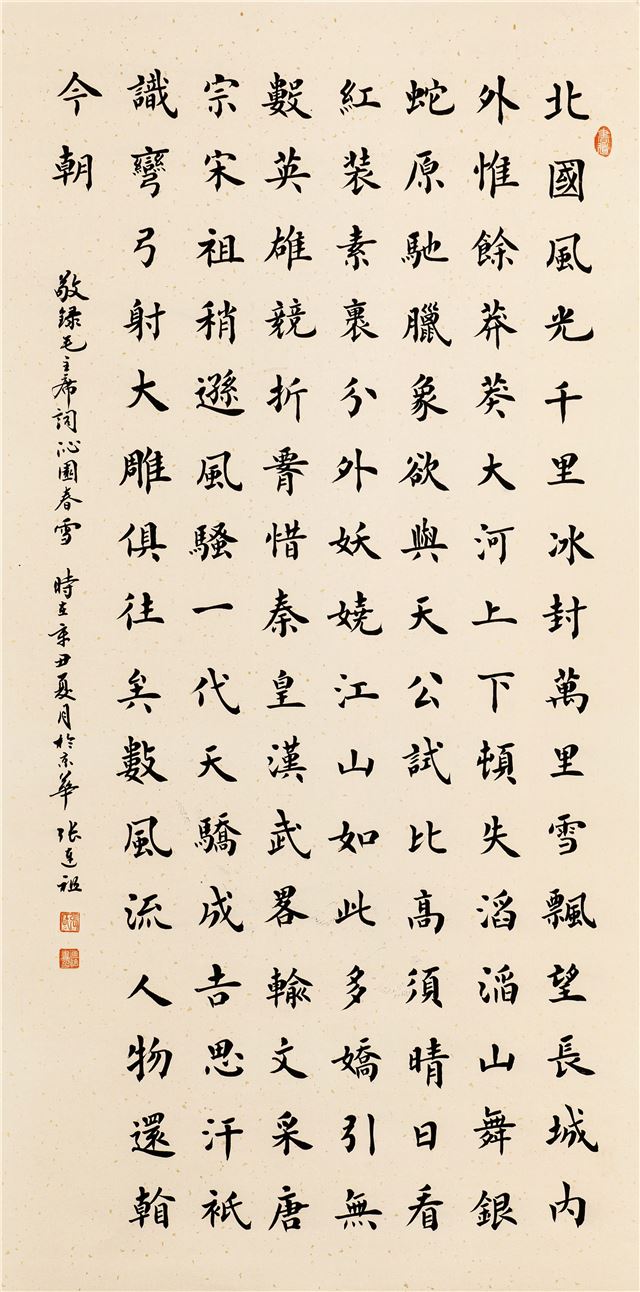 北國風光千里冰封萬里雪飄望長城内
外惟餘莽莽大河上下頓失滔滔山舞銀
蛇原馳臘象欲與天公試比髙須晴日看
紅装素裹分外妖嬈江山如此多嬌引無
數英雄競折腰惜秦皇漢武畧輸文采唐
宗宋祖稍遜風騷一代天驕成吉思汗衹
識彎弓射大雕俱往矣數風流人物還看
今朝
敬録毛主席詞沁園春雪 時在辛丑夏月於京華 張連祖